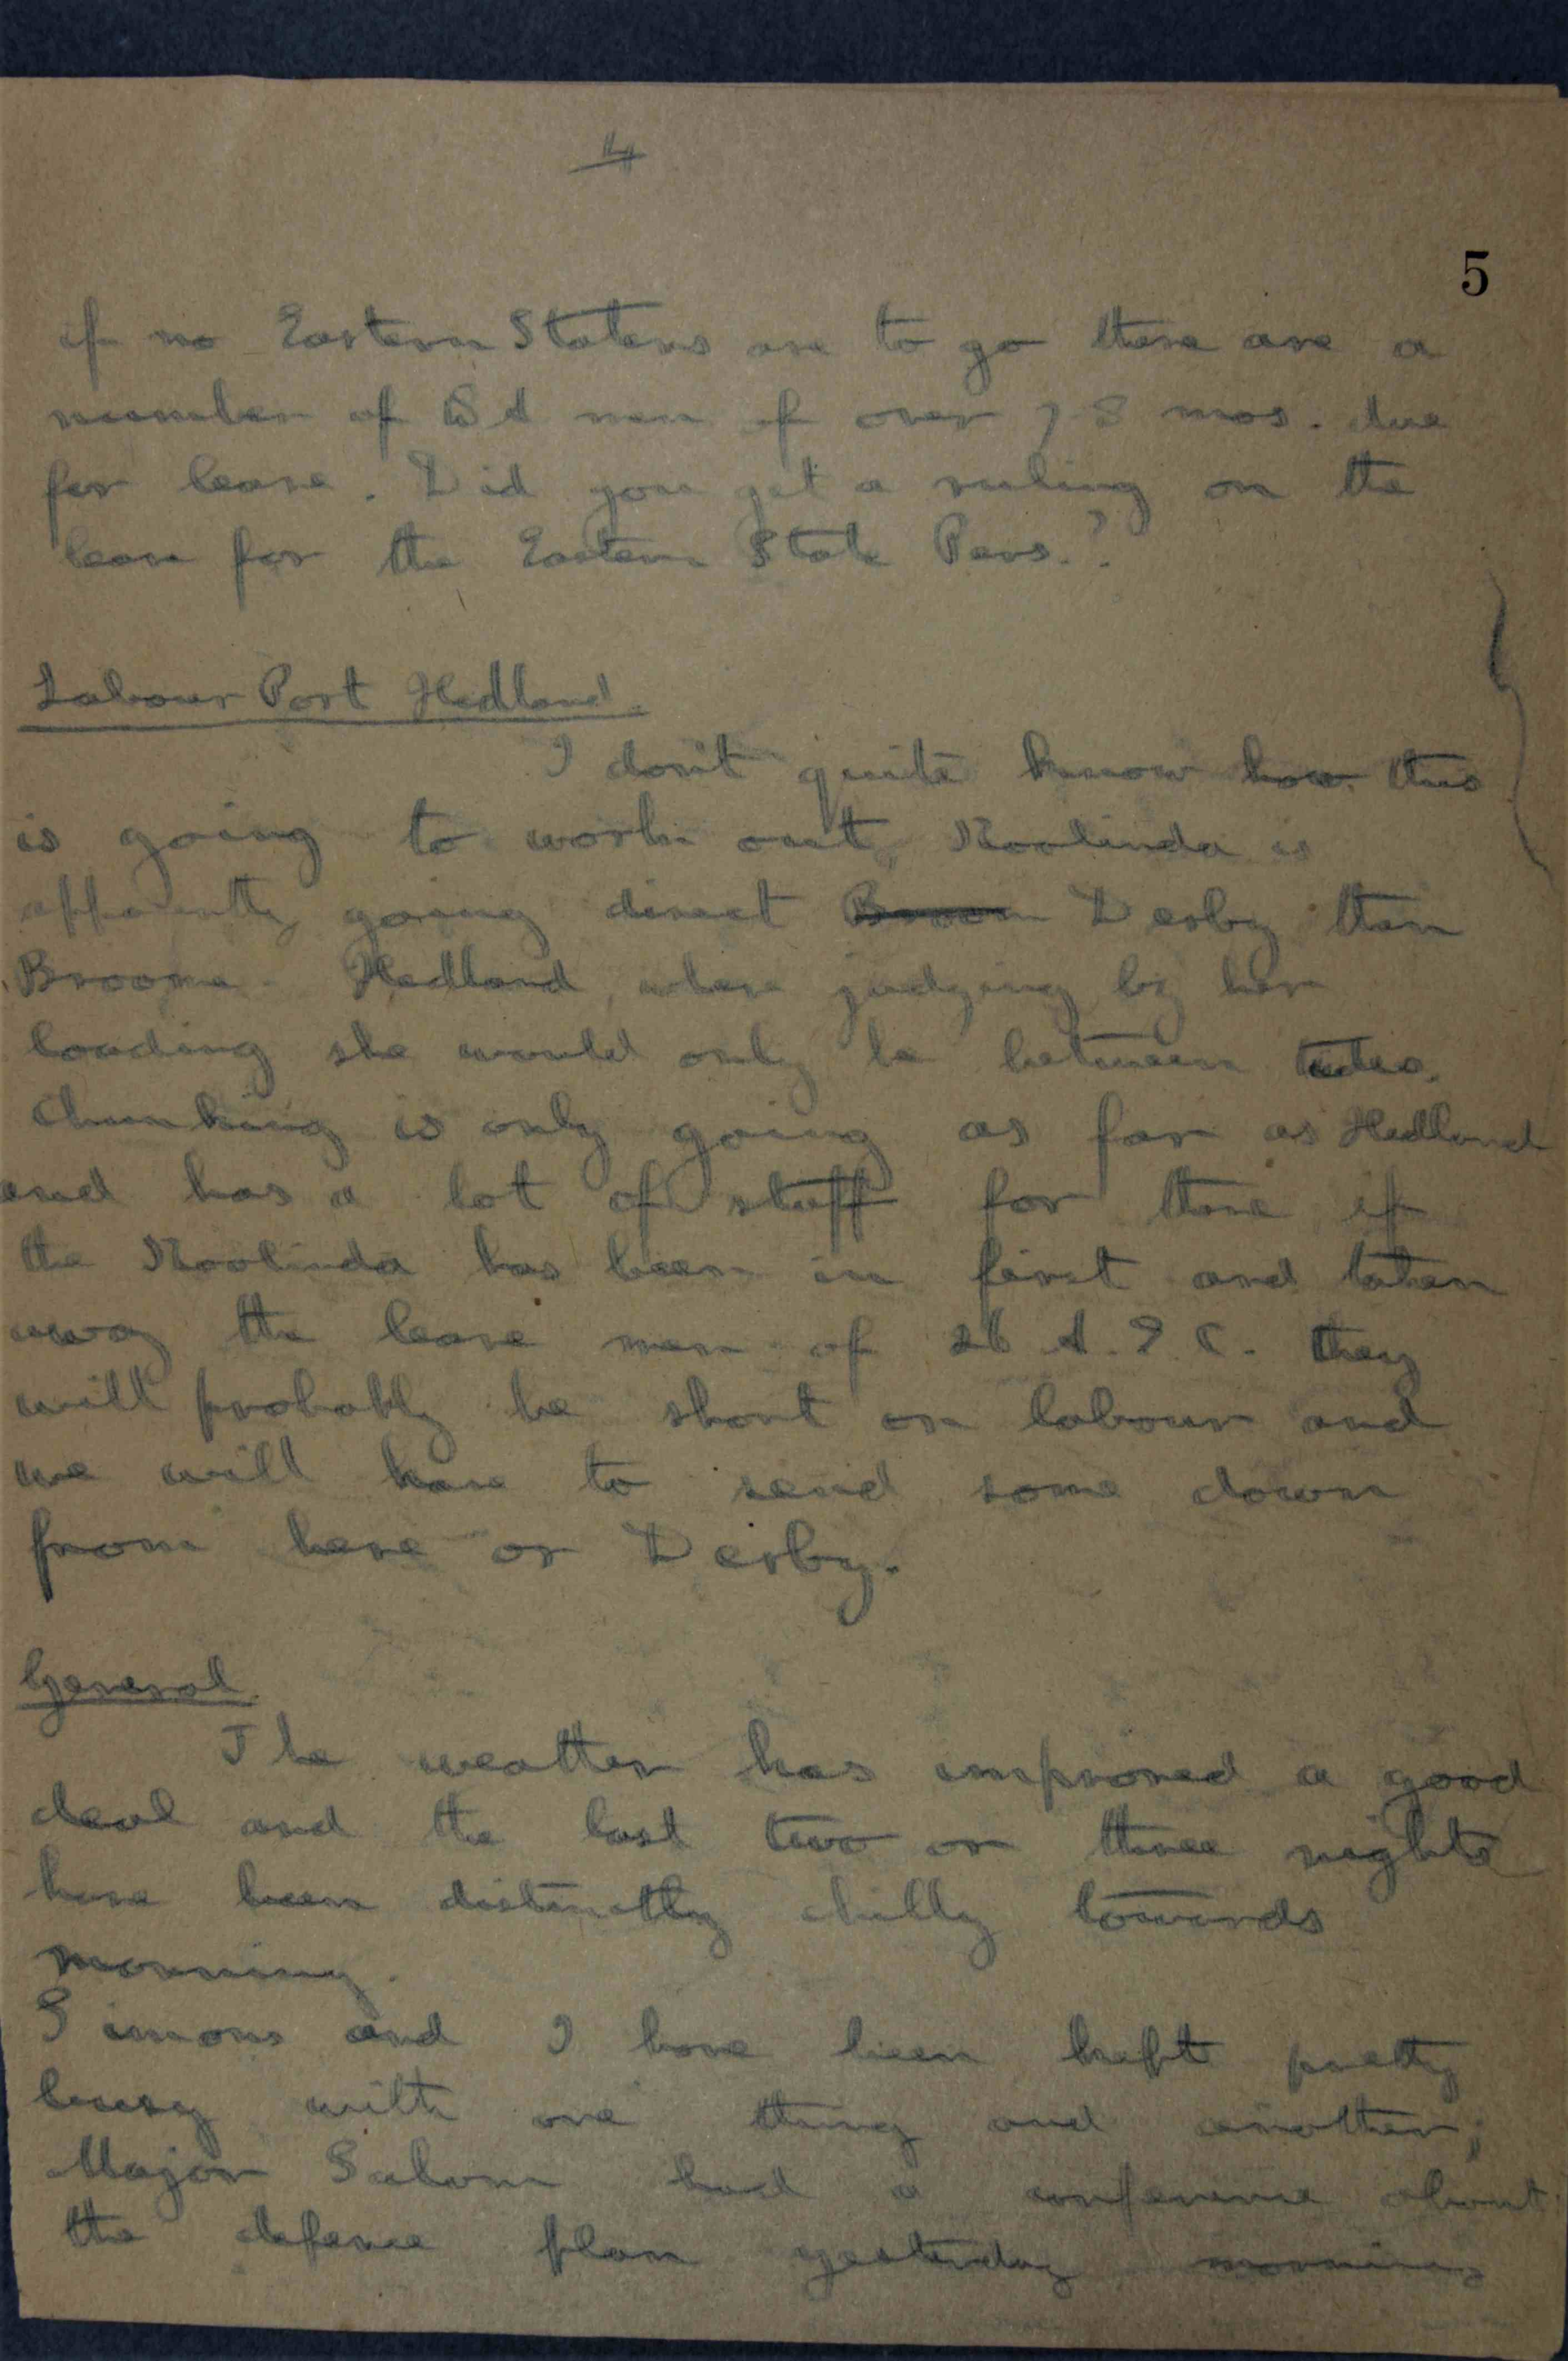 4
5
if no Eastern Staters are to go there are a
number of men of over 18 mos. due
for leave. Did you get a ruling on the
leave for the Eastern State Pers.?
Labour Port Hedland.
I don't quite know how this
is going to work out, Koolinda is
apparently going direct Derby then
Broome Hedland where judging by her
loading she would only be between tides.
Chunking is only going as far as Hedland
and has a lot of stuff for there if
the Koolinda has been in first and taken
away the leave men of they
will probably be short on labour and
we will have to send some down
from here or Derby.
General
The weather has improved a good
deal and the last two or three nights
have been distinctly chilly towards
morning.
Simons and I have been kept pretty
busy with one thing and another;
Major Salom had a conference about
the defence plan yesterday morning